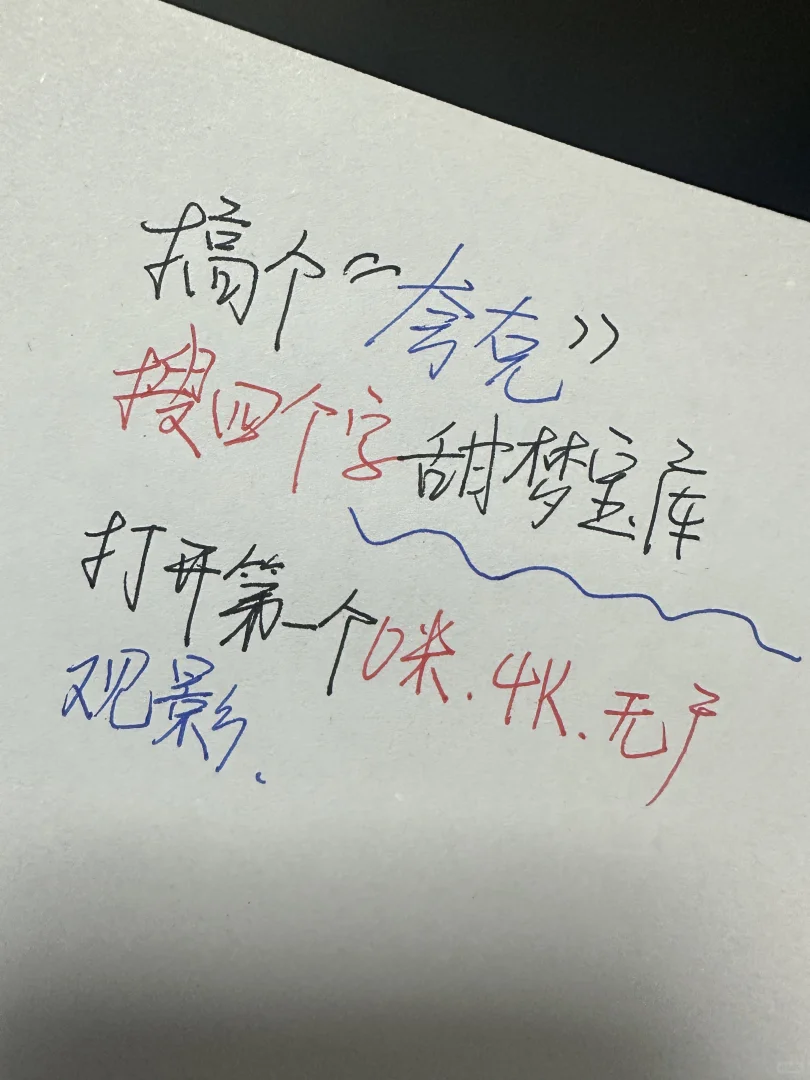 搞个“夸克”
搜四个字甜梦宝库
打开第一个0米.4K.无广
观影.